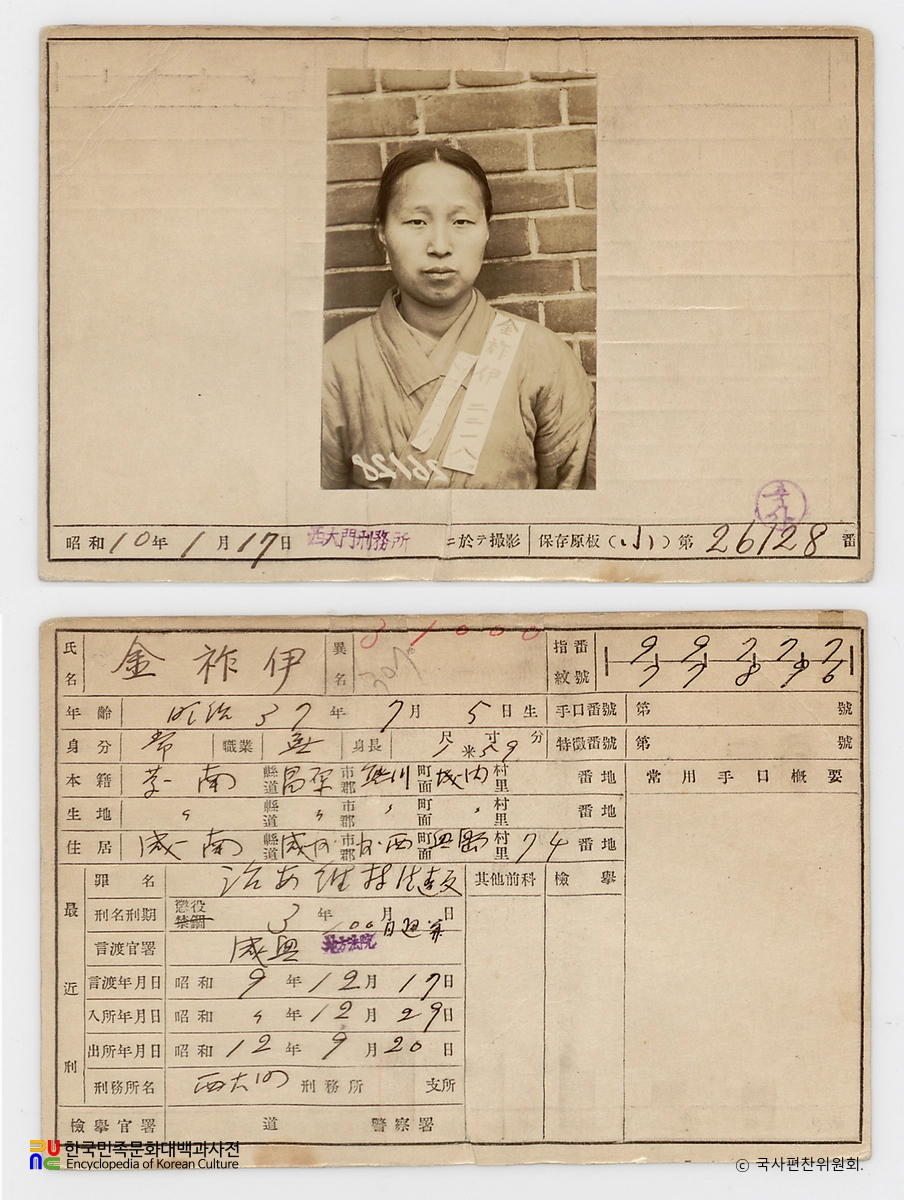 金祚伊 二二一八
26128
昭和10年1月17日 西大門刑務所 ニ於テ撮影 保存原板(小)第26128番
氏名 金祚伊 異名 指紋番號
31000
年齡 明治37年7月5日生 手口番號 第 號
身分 常 職業 無 身長 尺寸分 1米59 特徵番號 第 號
本籍 慶南 縣道 昌原 市郡 熊川 町面 城內 村里 番地 常用手口槪要
生地 〃 縣道 〃 市郡 〃 町面 〃 村里 番地
住居 咸南 縣道 咸州 市郡 西 町面 村里 74 番地
最近刑
罪名 治安維持法違反 其他前科 檢擧
刑名刑期 懲役 禁錮 3年 月 日
100日通算
言渡官署 咸興 地方法院
言渡年月日 昭和9年12月17日
入所年月日 昭和〃年12月29日
出所年月日 昭和12年9月20日
刑務所名 西大門 刑務所 支所
檢擧官署 道 警察署
한국민족문화대백과사전
Encyclopedia of Korean Culture
© 국사편찬위원회.